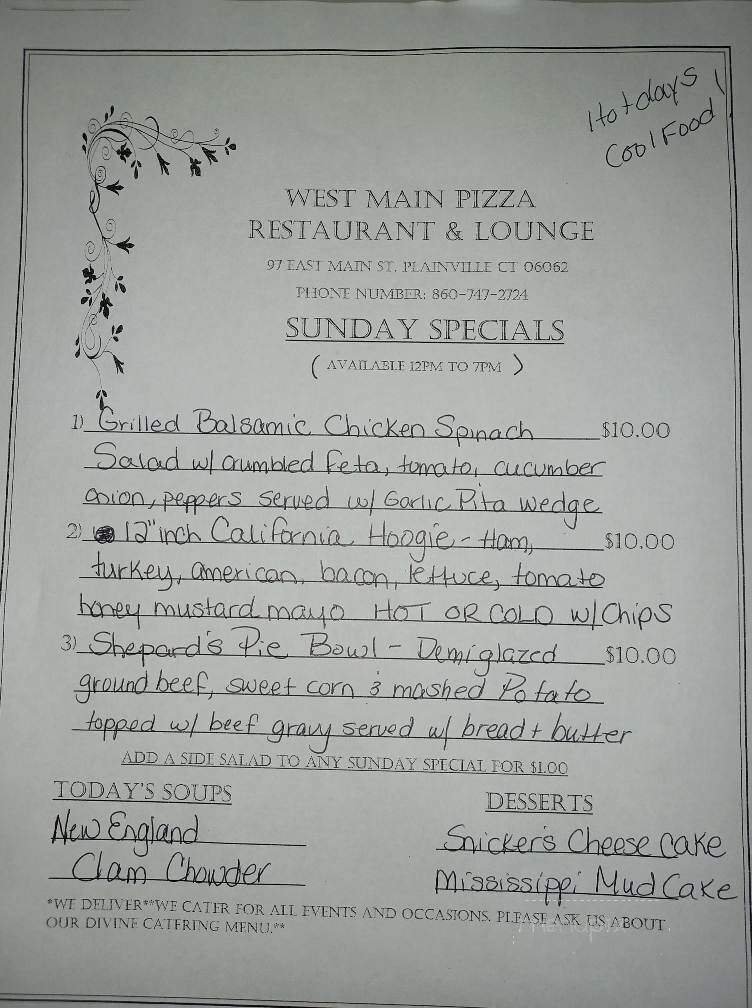 Hot days
Cool Food
WEST MAIN PIZZA
RESTAURANT & LOUNGE
97 EAST MAIN ST. PLAINVILLE CT 06062
PHONE NUMBER: 860-747-2724
SUNDAY SPECIALS
( AVAILABLE 12PM TO 7PM )
1) Grilled Balsamic Chicken Spinach $10.00
Salad w/ crumbled feta, tomato, cucumber
onion, peppers served w/ Garlic Pita wedge
2) 12" inch California Hoogie - Ham, $10.00
turkey, american, bacon, lettuce, tomato
honey mustard mayo HOT OR COLD w/ Chips
3) Shepard's Pie Bowl - Demiglazed $10.00
ground beef, sweet corn & mashed Potato
topped w/ beef gravy served w/ bread + butter
ADD A SIDE SALAD TO ANY SUNDAY SPECIAL FOR $1.00
TODAY'S SOUPS
New England
Clam Chowder
DESSERTS
Snicker's Cheese Cake
Mississippi Mud Cake
*WE DELIVER**WE CATER FOR ALL EVENTS AND OCCASIONS. PLEASE ASK US ABOUT
OUR DIVINE CATERING MENU.**